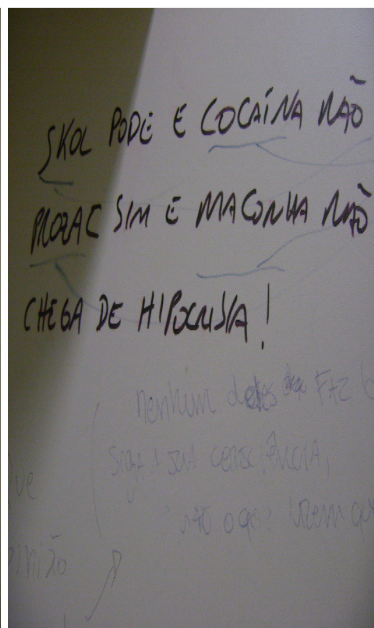 SKOL PODE E COCAÍNA NÃO
PROZAC SIM E MACONHA NÃO
CHEGA DE HIPOCRISIA!
nenhum deles FAZ
siga sua consciência,
não o que